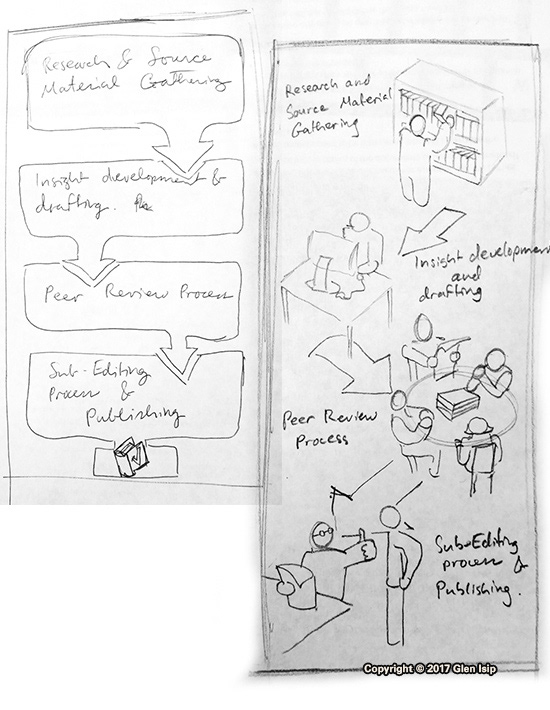 Research & Source
Material Gathering
Insight development &
drafting.
Peer Review Process
Sub-Editing
Process &
Publishing
Research and
Source Material
Gathering
Insight development
and
drafting
Peer Review
Process
Sub-Editing
process &
Publishing.
Copyright © 2017 Glen Isip